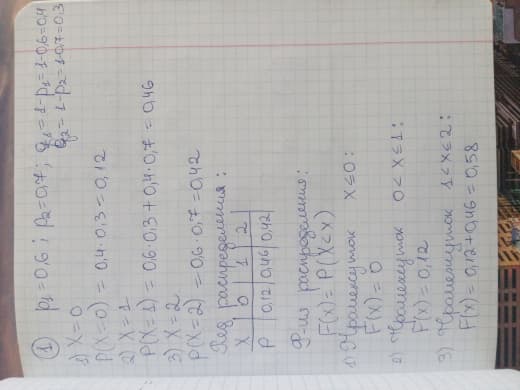 1 p₁=0,6; p₂=0,7; q₁=1-p₁=1-0,6=0,4
q₂=1-p₂=1-0,7=0,3
1) X=0
P(X=0)=0,4·0,3=0,12
2) X=1
P(X=1)=0,6·0,3+0,4·0,7=0,46
3) X=2
P(X=2)=0,6·0,7=0,42
распределения:
X | 0 | 1 | 2
P | 0,12 | 0,46 | 0,42
Ф-ия распределения:
F(x)=P(X<x)
1) Промежуток x≤0:
F(x)=0
2) Промежуток 0<x≤1:
F(x)=0,12
3) Промежуток 1<x≤2:
F(x)=0,12+0,46=0,58